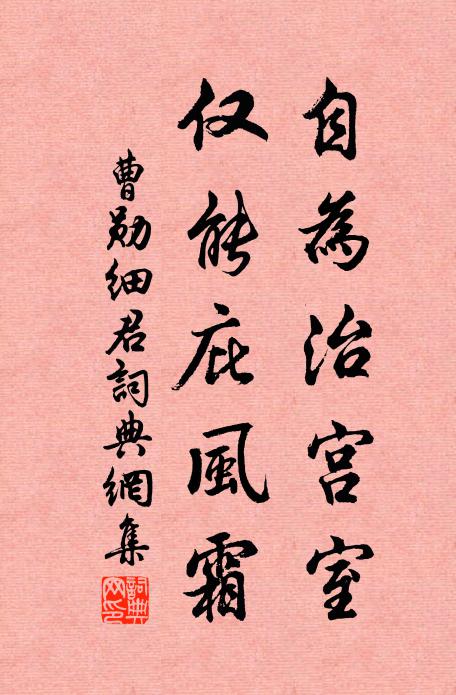 自為治宮室
仅能庇風霜
曹勛細君詞典網集
詞典網印